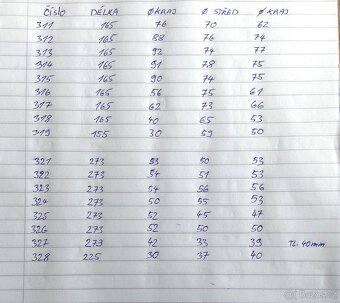 ČÍSLO DÉLKA Ø KRAJ Ø STŘED Ø KRAJ
311 165 76 70 62
312 165 88 76 74
313 165 92 74 77
314 165 91 78 75
315 165 90 74 75
316 165 56 75 61
317 165 62 73 66
318 165 40 65 53
319 155 30 59 50
321 273 53 50 53
322 273 54 51 53
323 273 54 56 56
324 273 50 55 53
325 273 52 45 47
326 273 52 50 50
327 273 42 33 39 TL. 40mm
328 225 30 37 40